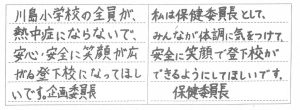 川島小学校の全員が、
熱中症にならないで、
安心・安全に笑顔が広
がる登校になってほし
いです。企画委員長
私は保健委員長として、
みんなが体調に気をつけて、
安全に笑顔で登下校が
できるようにしてほしいです。
保健委員長